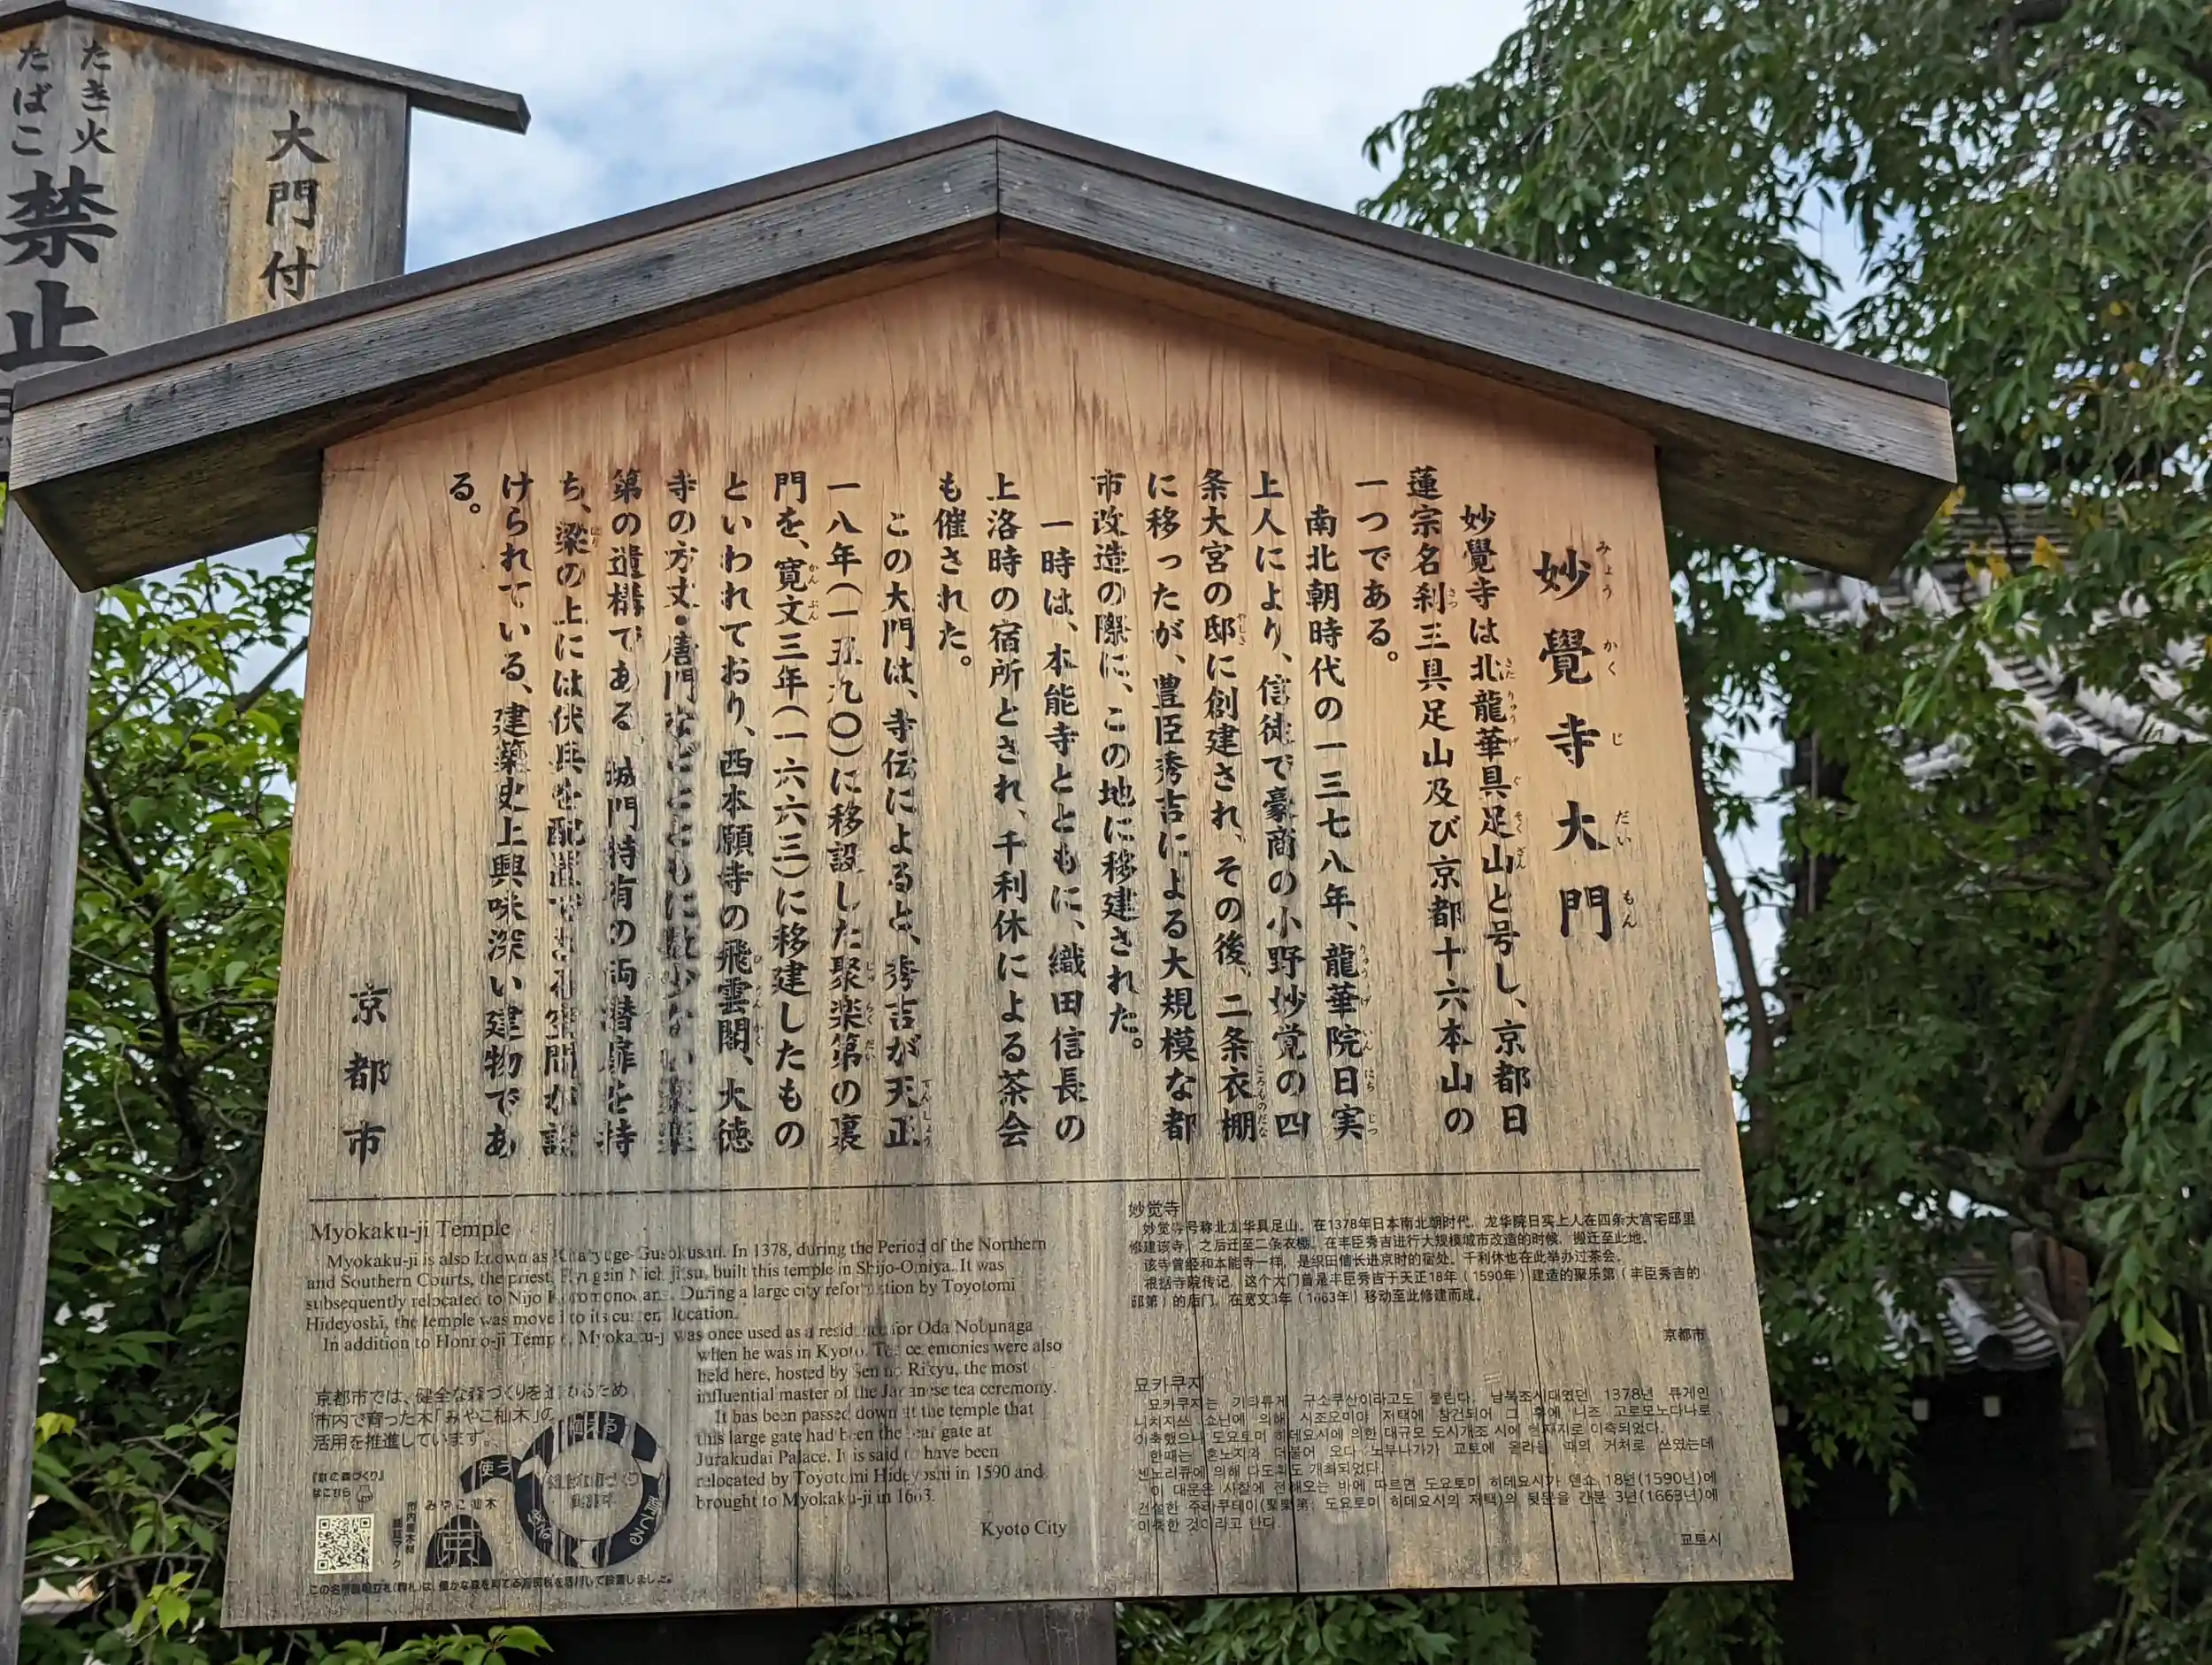 たき火
たばこ
禁止
大門付
妙覺寺大門
みょうかくじだいもん
妙覺寺は北龍華具足山と号し、京都日
蓮宗名刹三具足山及び京都十六本山の
一つである。
南北朝時代の一三七八年、龍華院日実
上人により、信徒で豪商の小野妙覚の四
条大宮の邸に創建され、その後、二条衣棚
に移ったが、豊臣秀吉による大規模な都
市改造の際に、この地に移建された。
一時は、本能寺とともに、織田信長の
上洛時の宿所とされ、千利休による茶会
も催された。
この大門は、寺伝によると、秀吉が天正
一八年(一五九〇)に移設した聚楽第の裏
門を、寛文三年(一六六三)に移建したもの
といわれており、西本願寺の飛雲閣、大徳
寺の方丈・唐門などとともに数少ない聚楽
第の遺構である。城門特有の両潜扉を持
ち、梁の上には伏兵を配置できる空間が設
けられている、建築史上興味深い建物であ
る。
京都市
Myokaku-ji Temple
Myokaku-ji is also known as Gusokusan. In 1378, during the Period of the Northern
and Southern Courts, the priest, built this temple in Shijo-Omiya. It was
subsequently relocated to Nijo During a large city by Toyotomi
Hideyoshi, the temple was moved to its current location.
In addition to Honno-ji Temple, Myokaku-ji was once used as a residence for Oda Nobunaga
when he was in Kyoto. Tea ceremonies were also
held here, hosted by Sen no Rikyu, the most
influential master of the Japanese tea ceremony.
It has been passed down at the temple that
this large gate had been the rear gate at
Jurakudai Palace. It is said to have been
relocated by Toyotomi Hideyoshi in 1590 and
brought to Myokaku-ji in 1663.
Kyoto City
妙觉寺
妙觉寺号称北龙华具足山。在1378年日本南北朝时代，龙华院日实上人在四条大宫宅邸里
修建该寺，之后迁至二条衣棚。在丰臣秀吉进行大规模城市改造的时候，搬迁至此地。
该寺曾经和本能寺一样，是织田信长进京时的宿处。千利休也在此举办过茶会。
根据寺院传记，这个大门曾是丰臣秀吉于天正18年（1590年）建造的聚乐第（丰臣秀吉的
邸第）的后门，在宽文3年（1663年）移动至此修建而成。
京都市
묘카쿠지
묘카쿠지는 기타류게 구소쿠산이라고도 불린다. 남북조시대였던 1378년 류게인
니치지쓰 쇼닌에 의해 시조오미야 저택에 창건되어 그 후에 니조 고로모노다나로
이축했으나 도요토미 히데요시에 의한 대규모 도시개조 시에 현재지로 이축되었다.
한때는 혼노지와 더불어 오다 노부나가가 교토에 올라올 때의 거처로 쓰였는데
센노리큐에 의해 다도회도 개최되었다.
이 대문은 사찰에 전해오는 바에 따르면 도요토미 히데요시가 덴쇼 18년(1590년)에
건설한 주라쿠테이(聚楽第: 도요토미 히데요시의 저택)의 뒷문을 간분 3년(1663년)에
이축한 것이라고 한다.
교토시
京都市では、健全な森づくりを進めるため
市内で育った木「みやこ杣木」の
活用を推進しています。
『京の森づくり』
はこちら
市内産木材
認証マーク
みやこ杣木
京
使う
植える
育てる
伐る